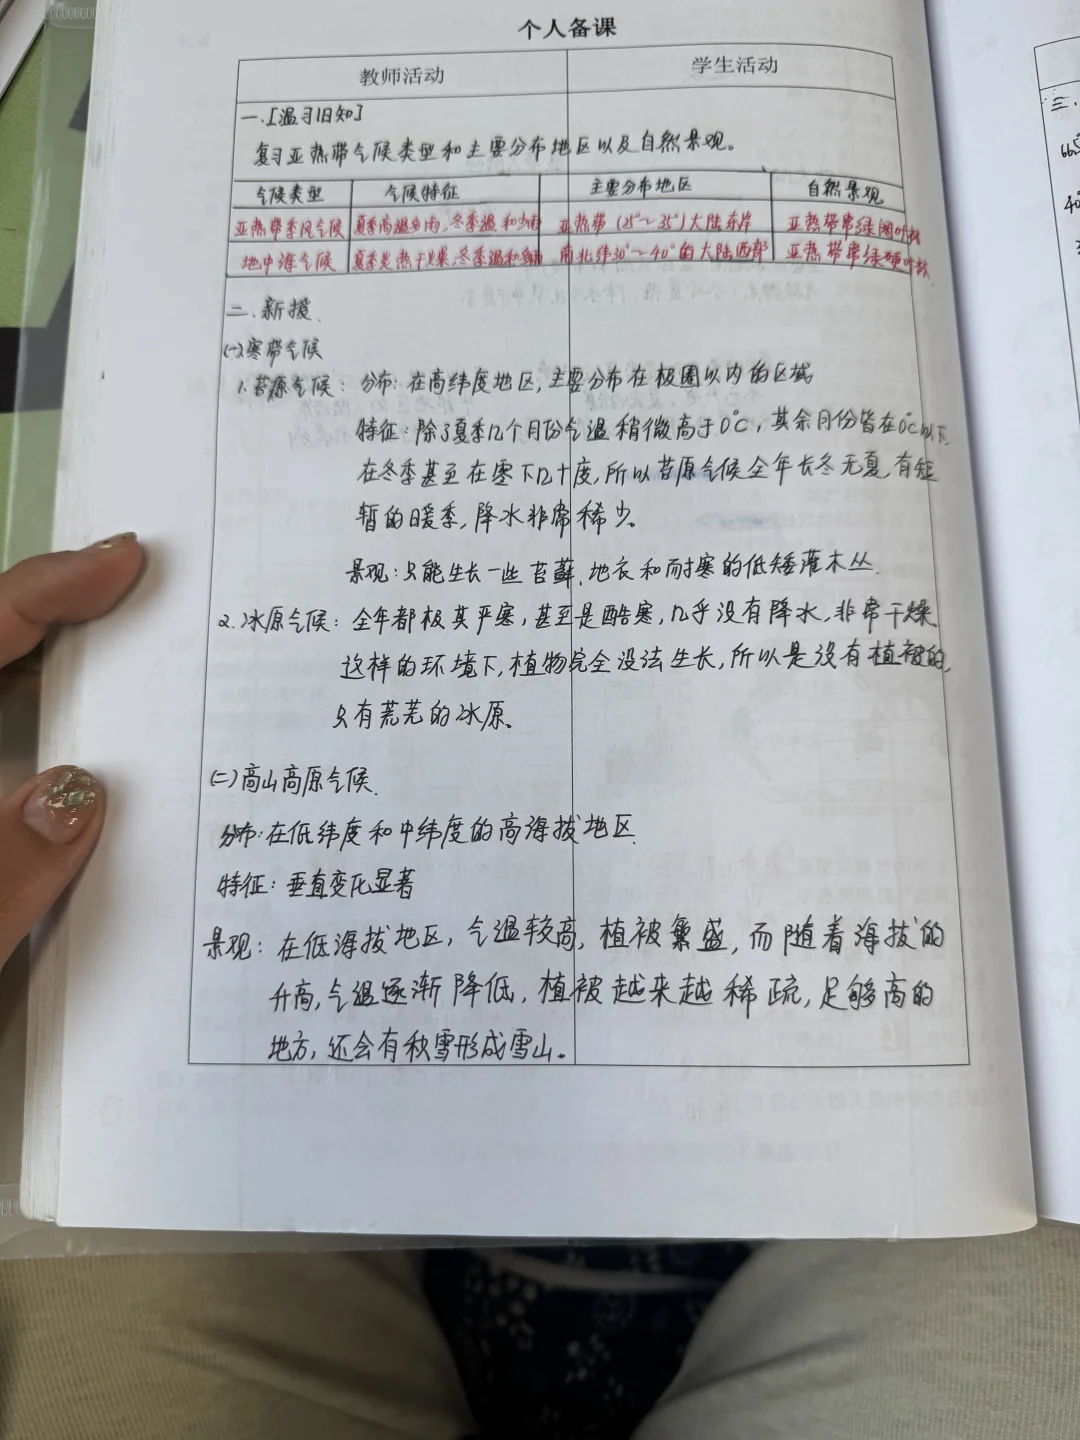 个人备课
教师活动 学生活动
一.[温习旧知]
复习亚热带气候类型和主要分布地区以及自然景观。
气候类型 气候特征 主要分布地区 自然景观
亚热带季风气候 夏季高温多雨,冬季温和少雨 亚热带(25°~35°)大陆东岸 亚热带常绿阔叶林
地中海气候 夏季炎热干燥,冬季温和多雨 南北纬30°~40°的大陆西部 亚热带常绿硬叶林
二.新授.
(一)寒带气候
1.苔原气候: 分布: 在高纬度地区,主要分布在极圈以内的区域
特征:除了夏季几个月份气温稍微高于0℃,其余月份皆在0℃以下.
在冬季甚至在零下几十度,所以苔原气候全年长冬无夏,有短
暂的暖季,降水非常稀少。
景观:只能生长一些苔藓、地衣和耐寒的低矮灌木丛.
2.冰原气候: 全年都极其严寒,甚至是酷寒,几乎没有降水,非常干燥.
这样的环境下,植物完全没法生长,所以是没有植被的,
只有荒芜的冰原。
(二)高山高原气候.
分布:在低纬度和中纬度的高海拔地区.
特征:垂直变化显著
景观:在低海拔地区,气温较高,植被繁盛,而随着海拔的
升高,气温逐渐降低,植被越来越稀疏,足够高的
地方,还会有积雪形成雪山。
三.